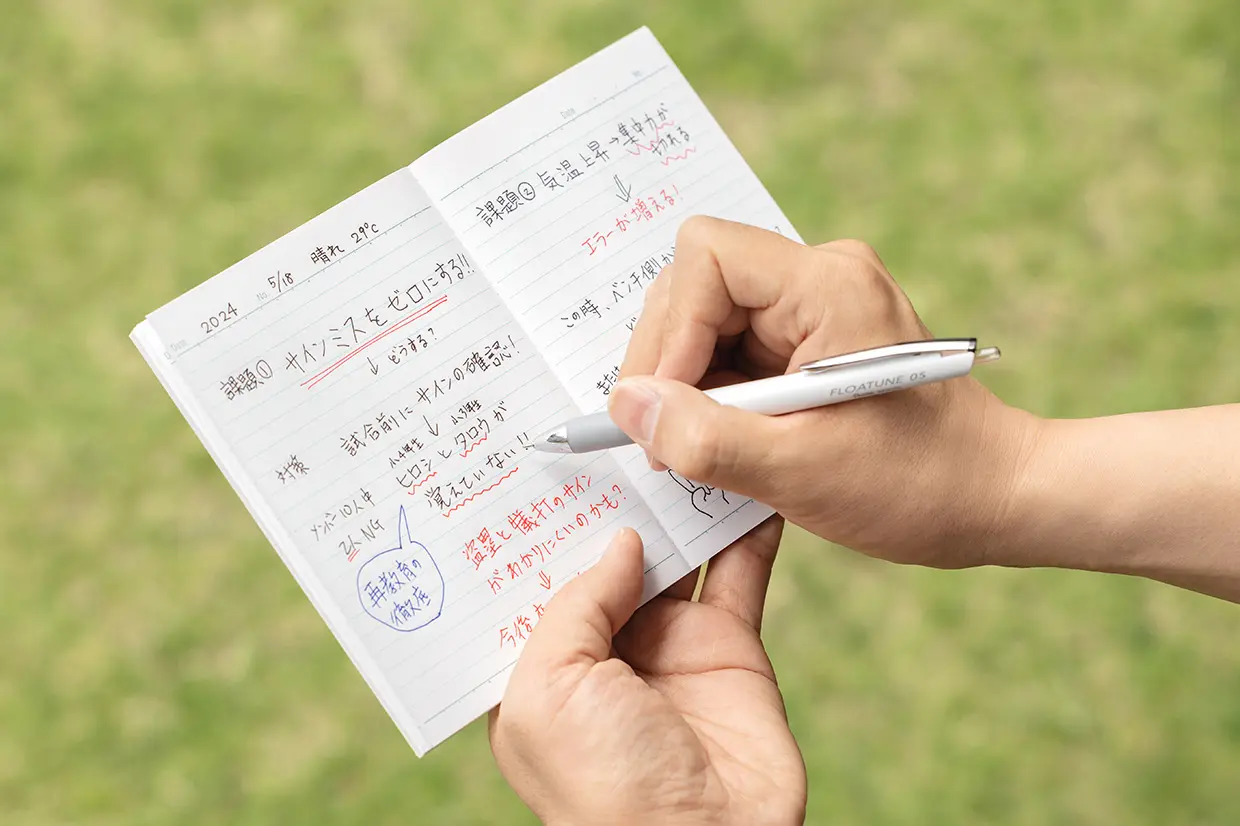 2024 5/18 晴れ 29℃
No.
課題① サインミスをゼロにする!!
↓どうする?
対策 試合前にサインの確認!
↓
小4年生 小3年生
ヒロシとタロウが
覚えていない!!
メンバー10人中
2人NG
再教育の
徹底
盗塁と犠打のサイン
がわかりにくいのかも?
↓
今後
Date
No.
課題② 気温上昇→集中力が
切れる
⇓
エラーが増える!
この時、ベンチ側が
また
FLOATUNE 05